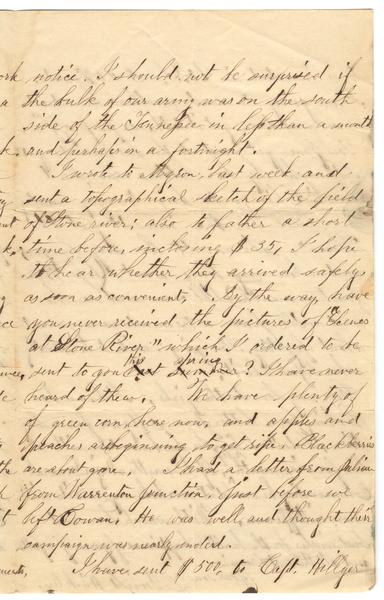 ork notice. I should not be surprised if
a the bulk of our army was on the south
side of the Tennessee in less than a month
and perhaps in a fortnight.
I wrote to Myron last week and
sent a topographical sketch of the field
of Stone river; also to father a short
time before, inclosing $35, I hope
to hear whether they arrived safely,
as soon as convenient. By the way, have
you never received the pictures of "Scenes
at Stone River" which I ordered to be
sent to you this spring? I have never
heard of them. We have plenty of
of green corn here now, and apples and
peaches are beginning to get ripe. Blackberries
are about gone. I had a letter from Julius
from Warrenton Junction, just before we
left Cowan. He was well and thought their
campaign was nearly ended.
I have sent $500, to Capt. Hillyer